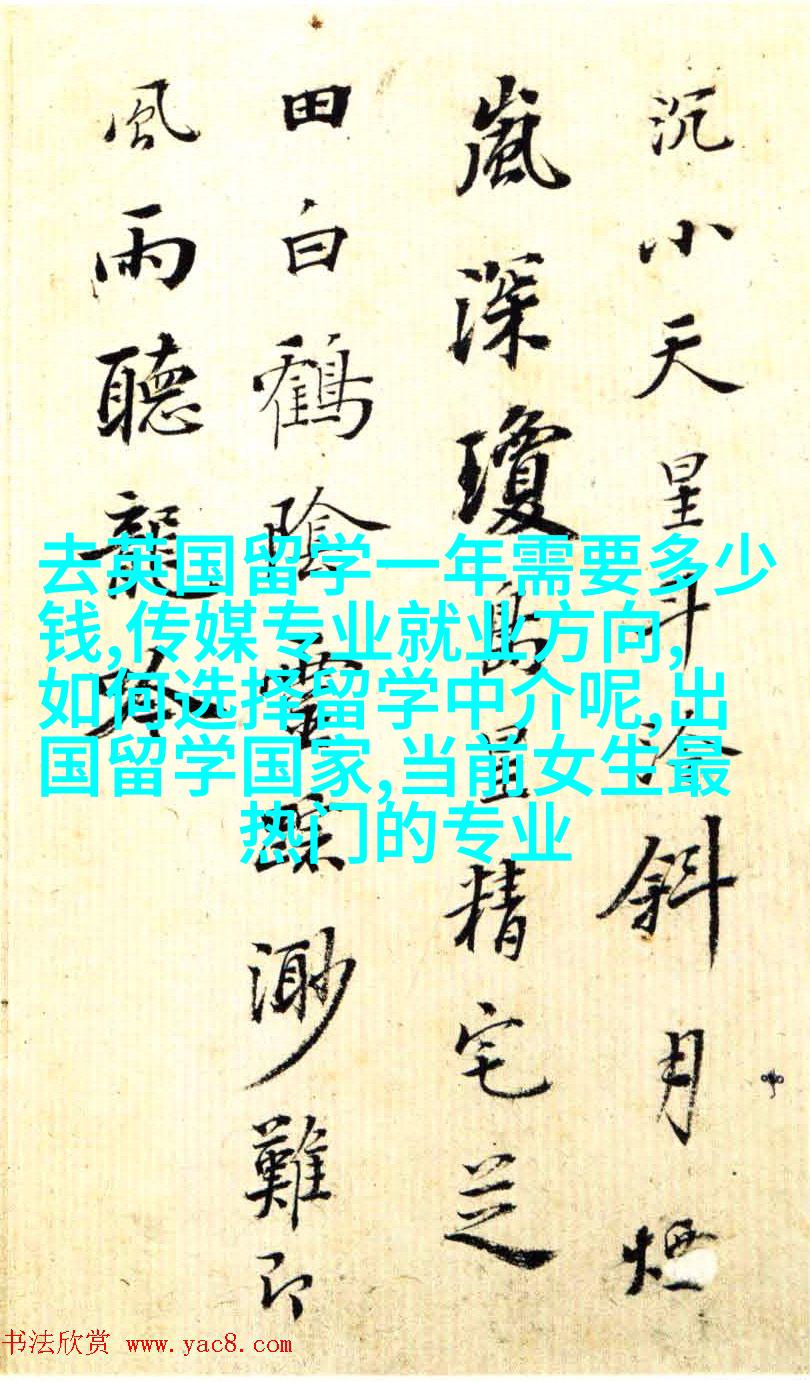 沉小天星斗冷斜月煙
嵐深瓊島星精宅芝
田白鶴陰靈蹤渺難即
風雨聽龍吟
去英国留学一年需要多少
钱,传媒专业就业方向,
如何选择留学中介呢,出
国留学国家,当前女生最
热门的专业
书法欣赏 www.yac8.com